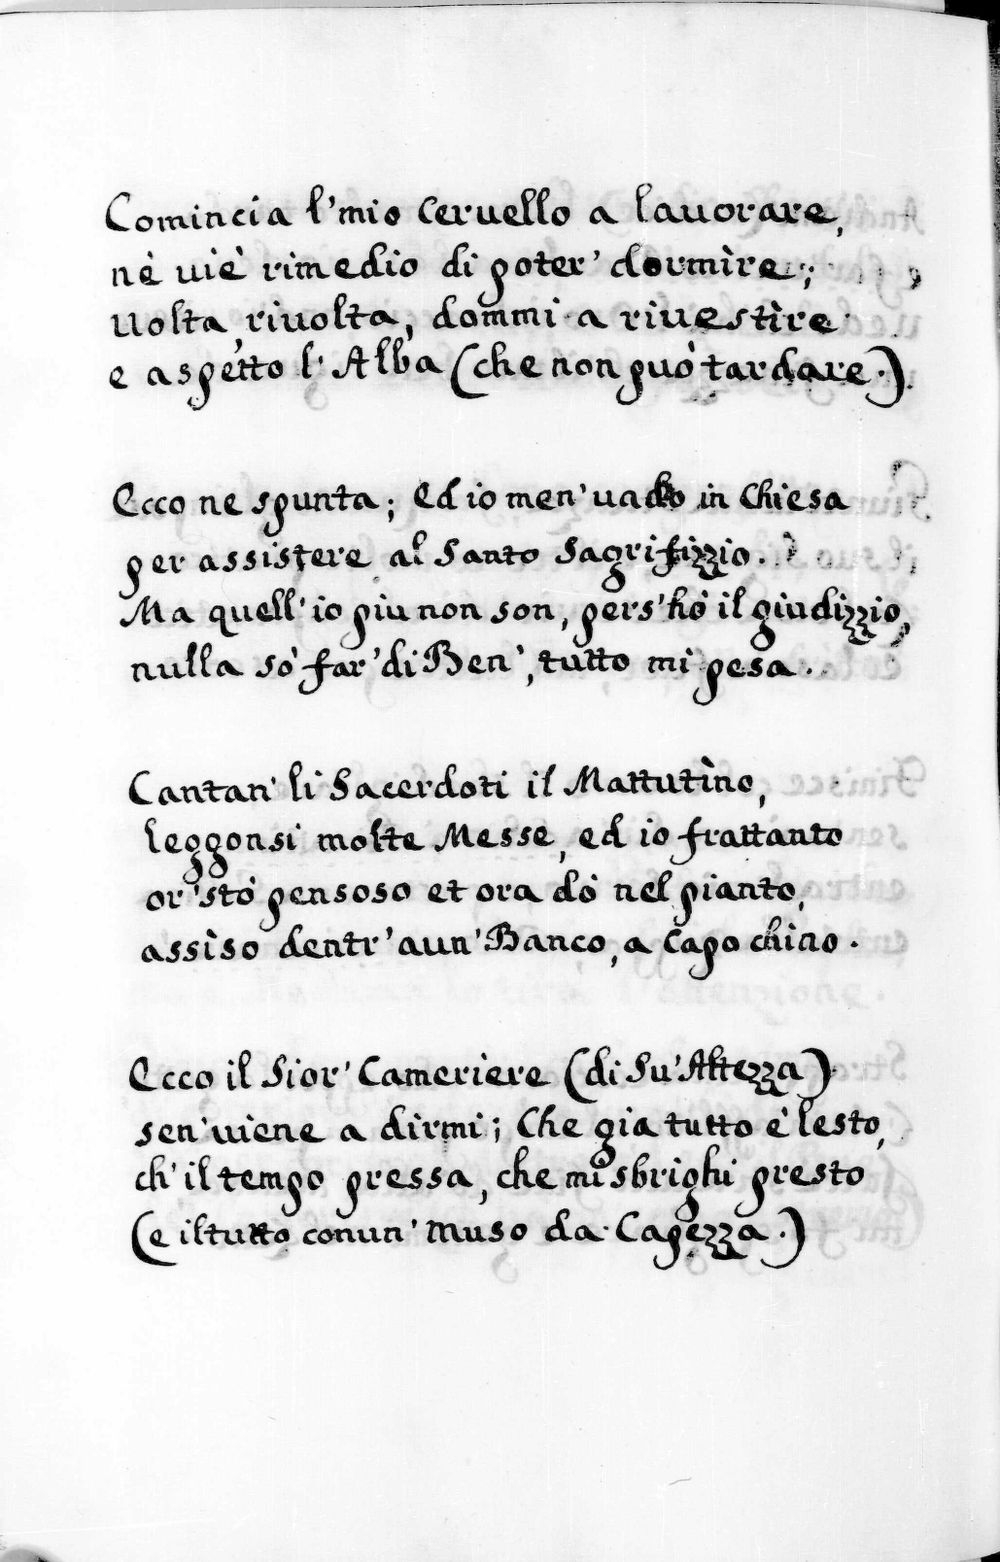 Comincia l'mio Ceruello a lauorare,
nè uiè rimedio di poter' dormìre;
uolta, riuolta, dommi a riuestìre
e aspetto l'Alba (che non può tardare.)
Ecco ne spunta; Ed io men' uado in Chiesa
per assistere al Santo Sagrifizzio.
Ma quell' io piu non son, pers'hò il giudizzio,
nulla sò far' di Ben', tutto mi pesa.
Cantan' li Sacerdoti il Mattutìno,
leggonsi molte Messe, ed io frattanto
or' stò pensoso et ora dò nel pianto,
assìso dentr' aun' Banco, a Capo chino.
Ecco il Sior' Cameriere (di Su' Altezza)
sen' uiene a dirmi; Che gia tutto è lesto,
ch' il tempo pressa, che mi sbrighi presto
(e il tutto conun' muso da Capezza.)